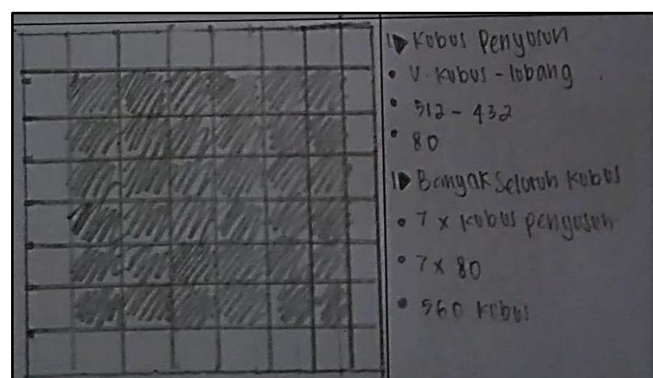 1▷ Kubus Penyusun
• V. Kubus - lobang
• 512 - 432
• 80
1▷ Banyak Seluruh Kubus
• 7 x kubus penyusun
• 7 x 80
• 560 kubus